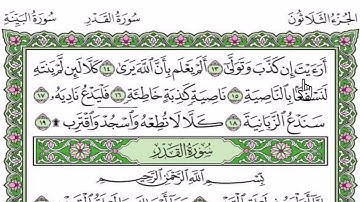 الجزء الثلاثون سورة القدر سورة البينة
أَرَءَيْتَ إِن كَذَّبَ وَتَوَلَّىٰ ١٣ أَلَمْ يَعْلَم بِأَنَّ ٱللَّهَ يَرَىٰ ١٤ كَلَّا لَئِن لَّمْ يَنتَهِ
لَنَسْفَعًۢا بِٱلنَّاصِيَةِ ١٥ نَاصِيَةٍ كَٰذِبَةٍ خَاطِئَةٍ ١٦ فَلْيَدْعُ نَادِيَهُۥ ١٧
سَنَدْعُ ٱلزَّبَانِيَةَ ١٨ كَلَّا لَا تُطِعْهُ وَٱسْجُدْ وَٱقْتَرِب ۩ ١٩
سُورَةُ القَدْرِ
بِسْمِ ٱللَّهِ ٱلرَّحْمَٰنِ ٱلرَّحِيمِ